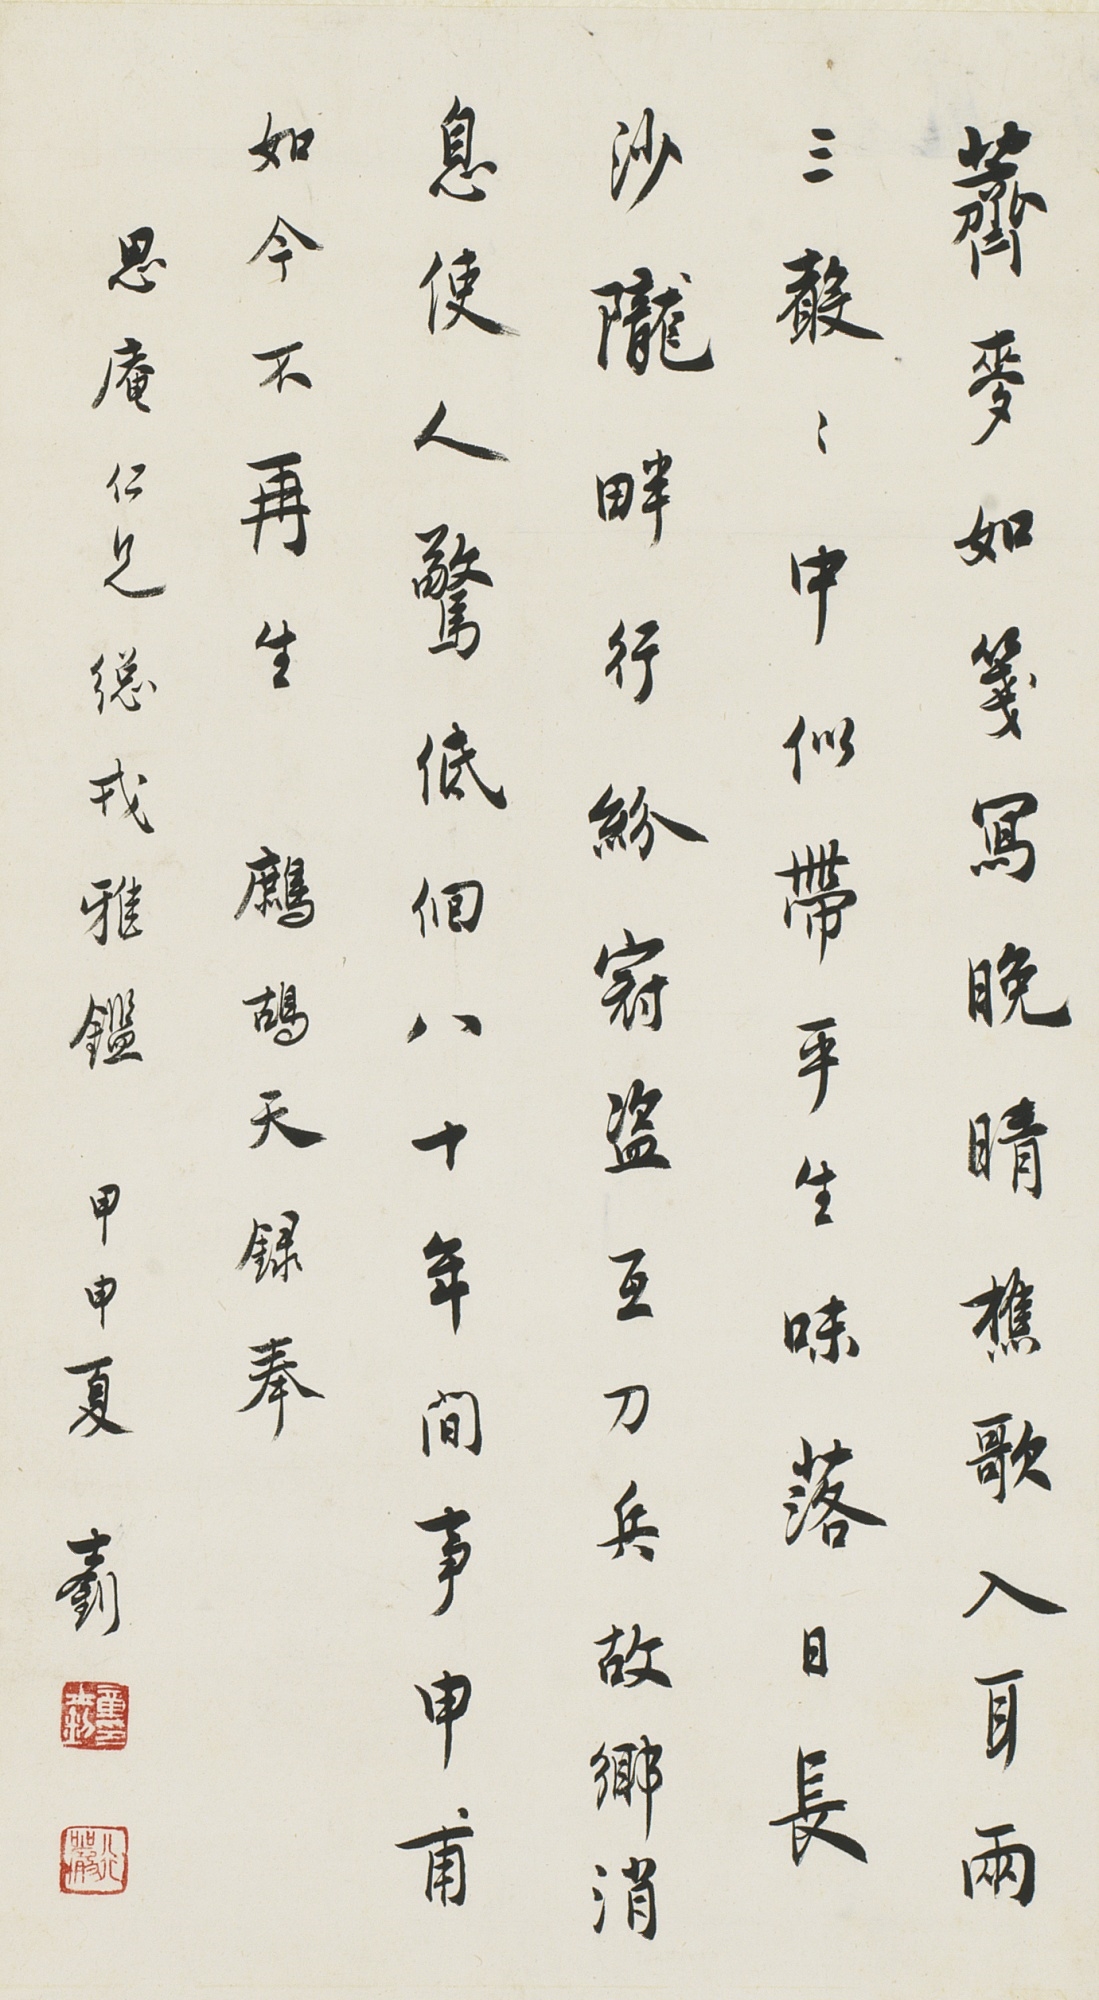 薺麥如箋寫晚晴樵歌入耳兩
三聲〻中似帶平生味落日長
沙隴畔行紛寇盜互刀兵故鄉消
息使人驚低佪八十年間事申甫
如今不再生　鷓鴣天錄奉
思庵仁兄總戎雅鑑　甲申夏　士釗